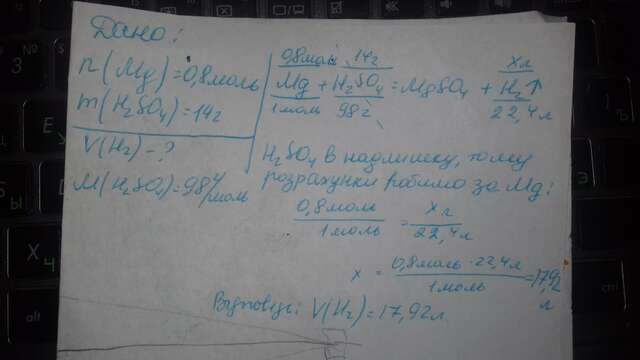 Дано:
n(Mg)=0,8моль
m(H₂SO₄)=14г
V(H₂)-?
M(H₂SO₄)=98г/моль
0,8моль 14г xл
Mg + H₂SO₄ = MgSO₄ + H₂↑
1моль 98г 22,4л
H₂SO₄ в надлишку, тому
розрахунки робимо за Mg:
0,8моль = xл
1моль 22,4л
x = 0,8моль·22,4л =17,92
1моль л
Відповідь: V(H₂)=17,92л.